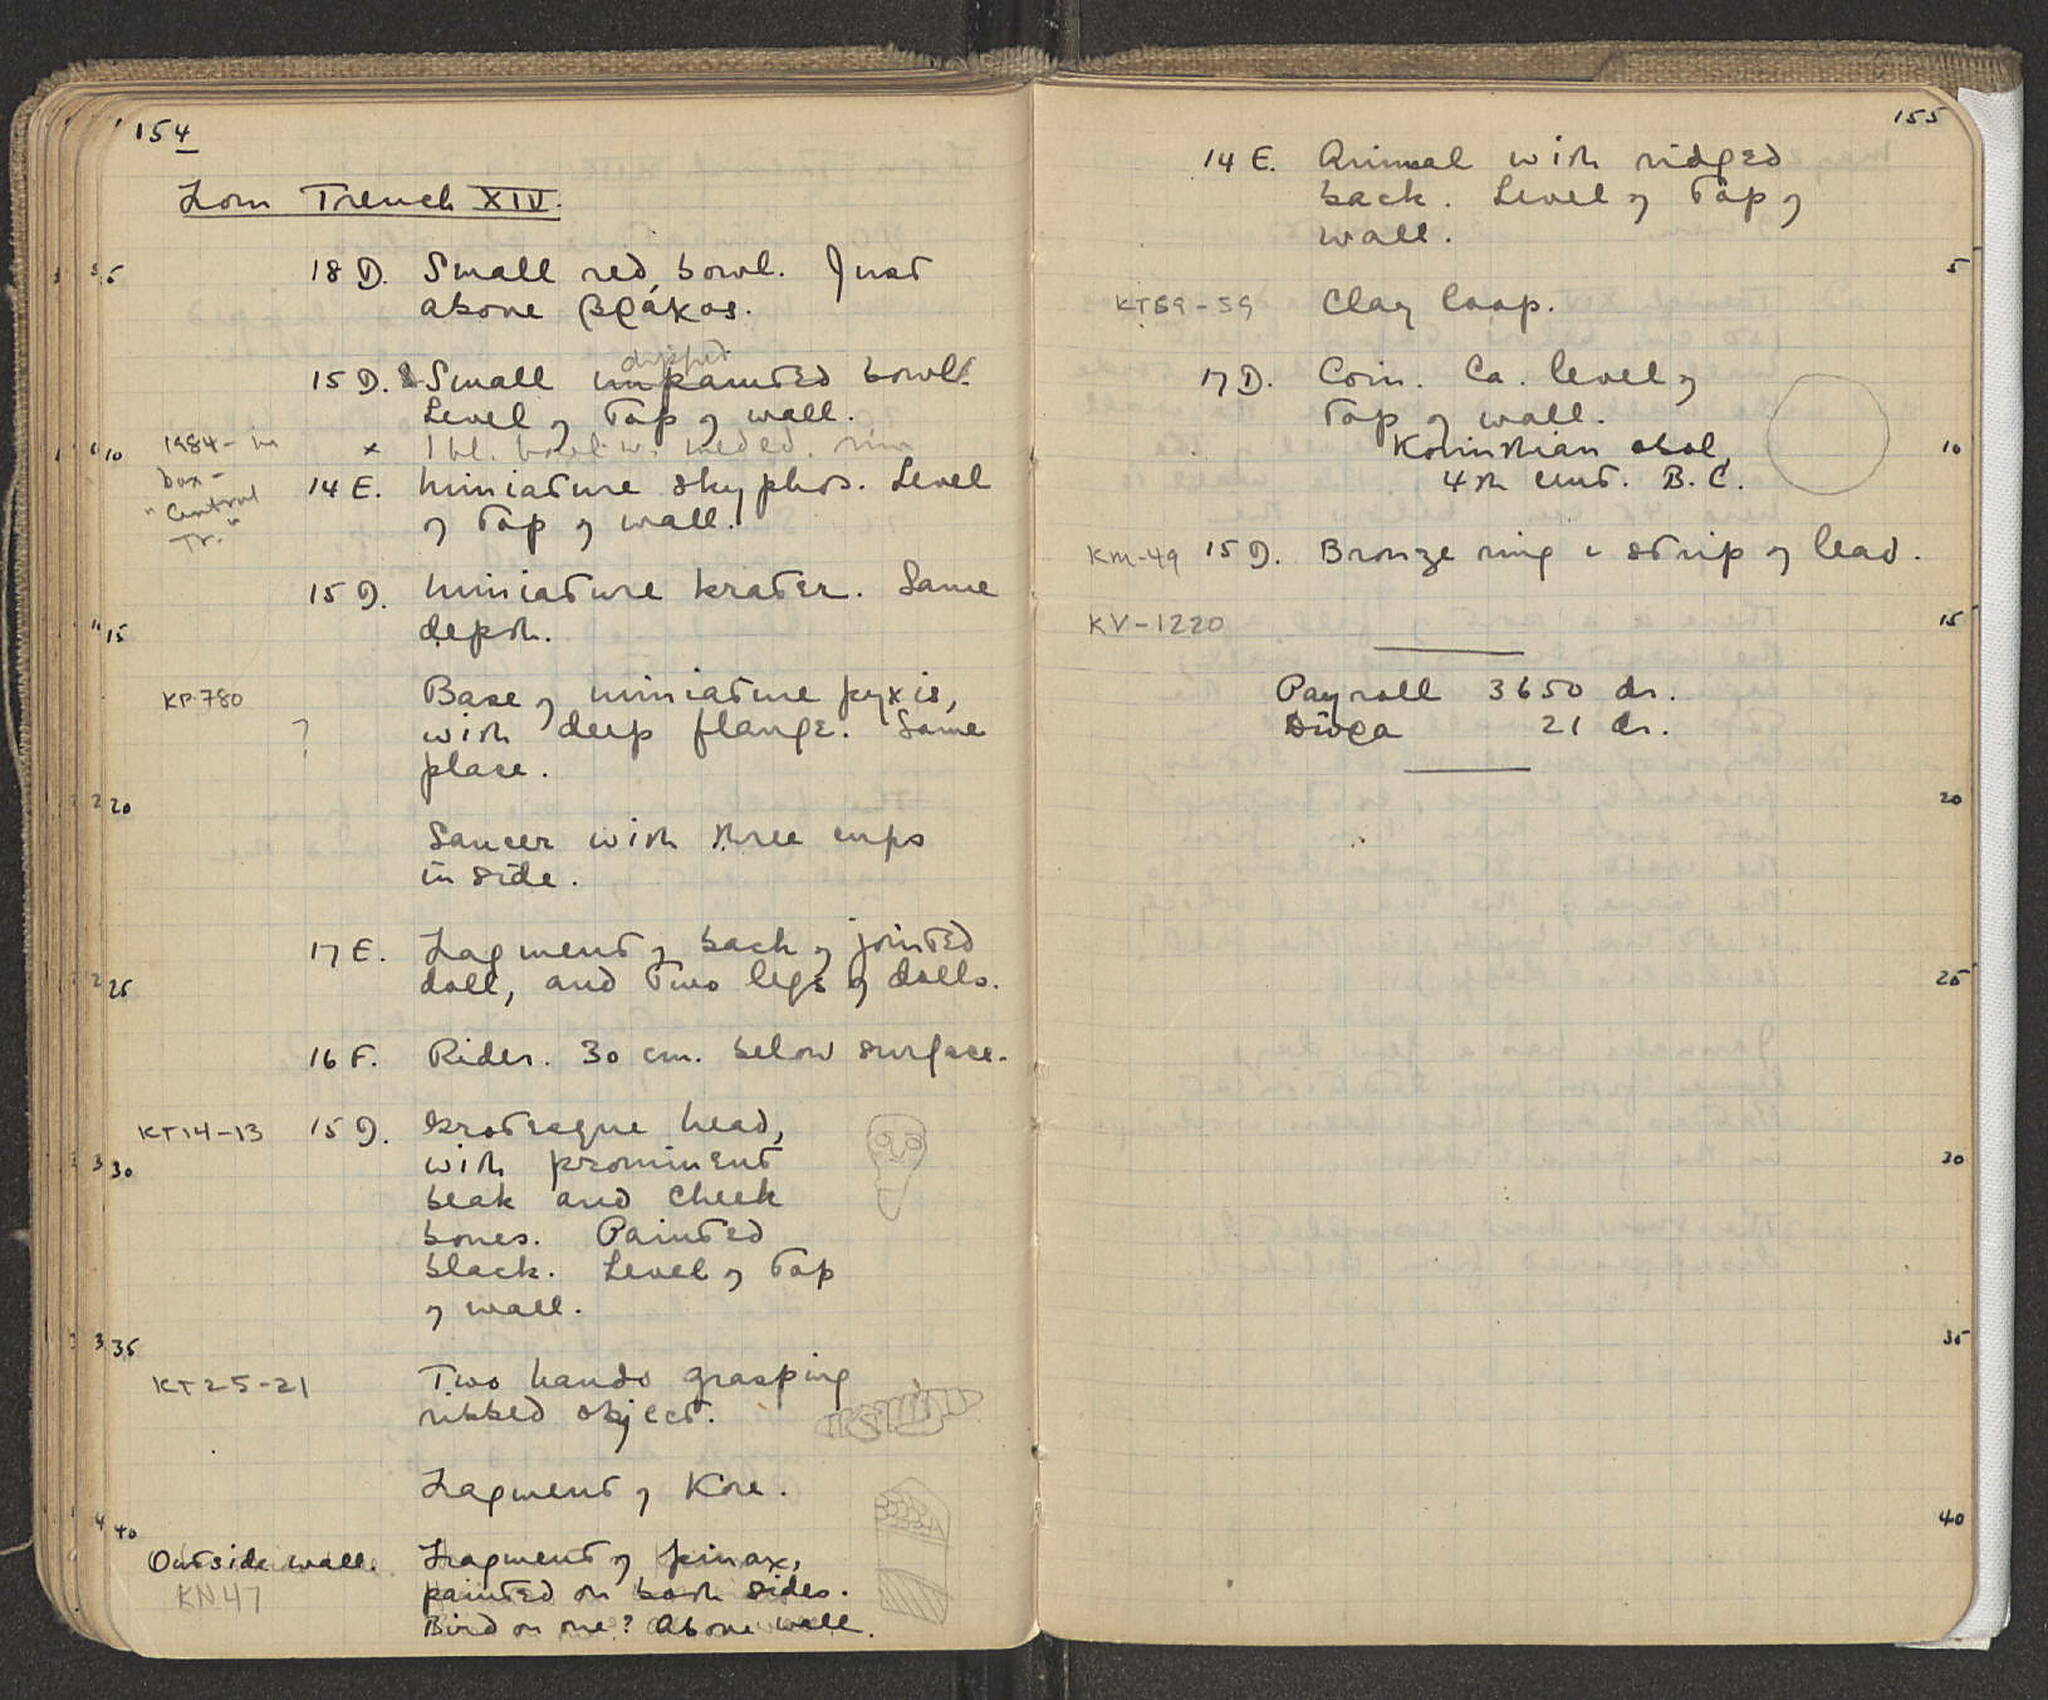 154
From Trench XIV.
18 D. Small red bowl. Just
above βράχος.
5
15 D. Small unpainted bowl.
dipped
Level of top of wall.
x 1 bl. bowl w. rim
10
1984 - in
box -
"Central
Tr."
14 E. Miniature skyphos. Level
of top of wall.
15 D. Miniature krater. Same
depth.
15
KP-780
?
Base of miniature pyxis,
with deep flange. Same
place.
20
Saucer with three cups
inside.
17 E. Fragment of back of jointed
doll, and two legs of dolls.
25
16 F. Rider. 30 cm. below surface.
KT14-13 15 D. Grotesque head,
with prominent
beak and cheek
bones. Painted
black. Level of top
of wall.
30
35
KT25-21
Two hands grasping
ribbed object.
Fragment of Kore.
40
Outside wall. Fragment of pinax,
KN47
painted on both sides.
Bird on one? Above wall.
155
14 E. Animal with ridged
back. Level of top of
wall.
5
KT59-59 Clay loop.
17 D. Coin. Ca. level of
top of wall.
Korinthian obol,
4th cent. B.C.
10
KM-49 15 D. Bronze ring & strip of lead.
KV-1220
15
Payroll 3650 dr.
21 dr.
20
25
30
35
40